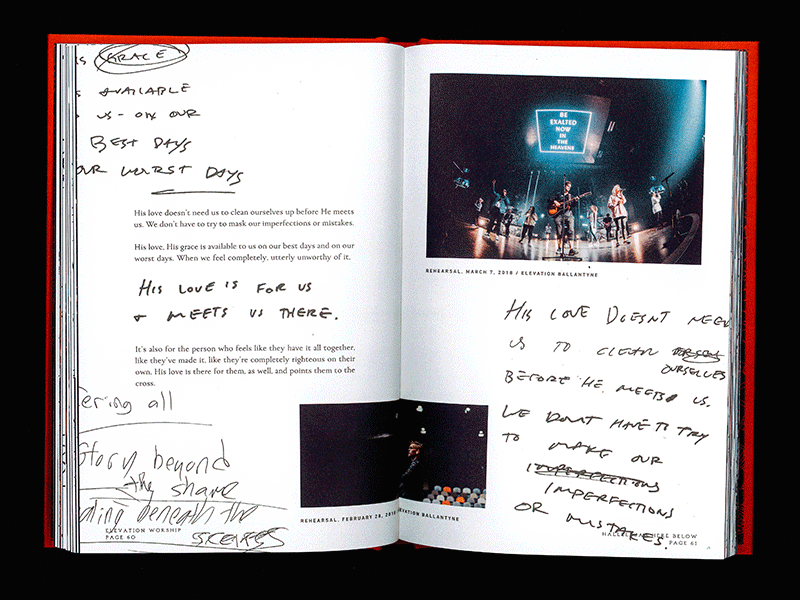 GRACE
AVAILABLE
US - ON OUR
BEST DAYS
OUR WORST DAYS
His love doesn't need us to clean ourselves up before He meets
us. We don't have to try to mask our imperfections or mistakes.
His love, His grace is available to us on our best days and on our
worst days. When we feel completely, utterly unworthy of it.
HIS LOVE IS FOR US
& MEETS US THERE.
It's also for the person who feels like they have it all together,
like they've made it, like they're completely righteous on their
own. His love is there for them, as well, and points them to the
cross.
ering all
Story beyond
the share
beneath the
SCENES
ELEVATION WORSHIP
PAGE 60
REHEARSAL, FEBRUARY 28, 2018 / ELEVATION BALLANTYNE
BE
EXALTED
NOW
IN THE
HEAVENS
REHEARSAL, MARCH 7, 2018 / ELEVATION BALLANTYNE
HIS LOVE DOESNT NEED
US TO CLEAN
OURSELVES
BEFORE HE MEETS US.
WE DONT HAVE TO TRY
TO MAKE OUR
IMPERFECTIONS
IMPERFECTIONS
OR MISTAKES.
HERE BELOW
PAGE 61